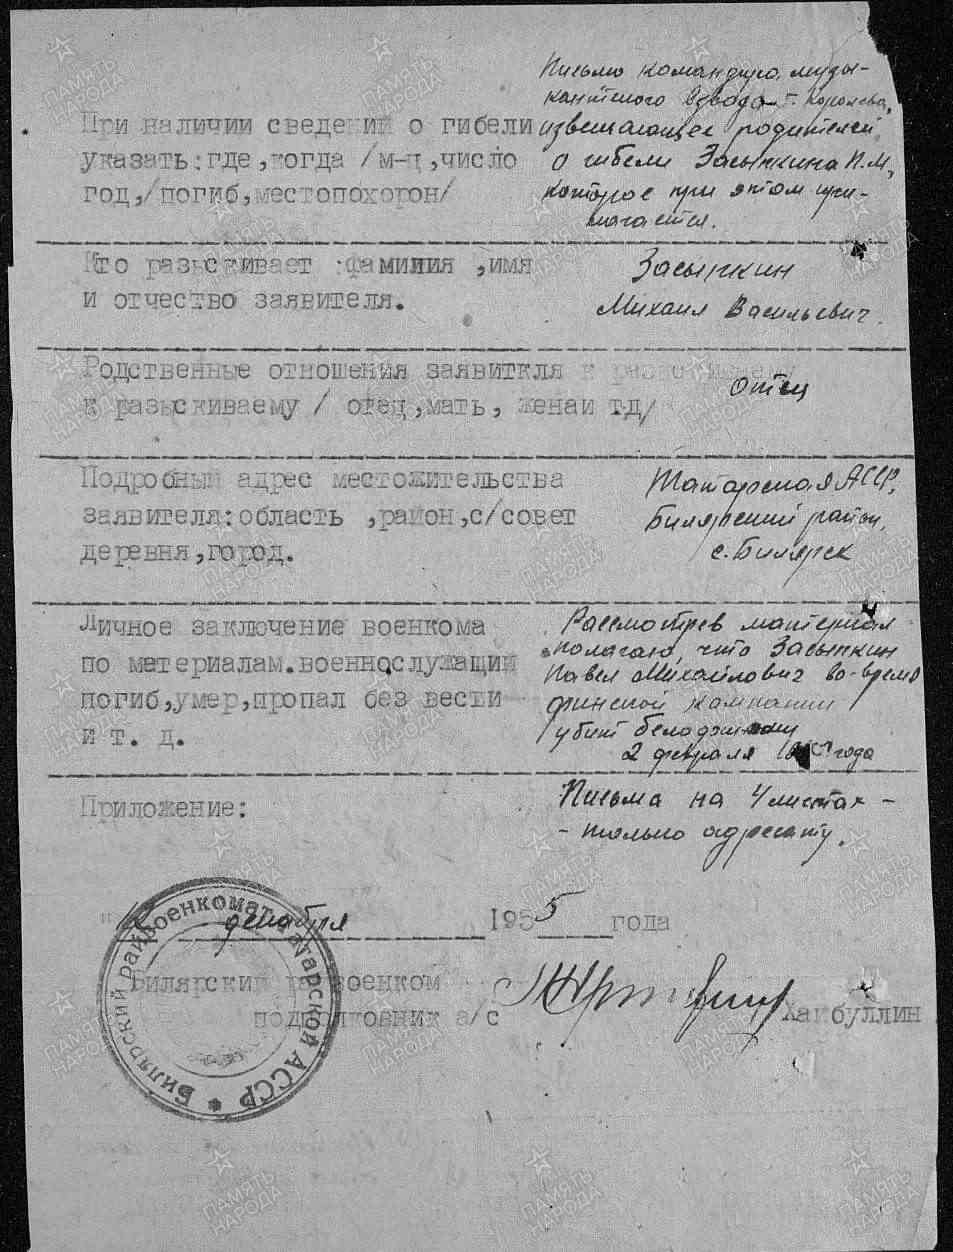 При наличии сведений о гибели
указать: где, когда /м-ц, число
год,/погиб, местопохорон/
Письмо командира музы-
кантского взвода Г. Королева,
извещающее родителей
о гибели Засыпкина П.М.,
которое при этом при-
лагается.
Кто разыскивает :фамилия ,имя
и отчество заявителя.
Засыпкин
Михаил Васильевич.
Родственные отношения заявиткля к
к разыскиваему / отец,мать, женаи т.д/
отец
Подробный адрес местожительства
заявителя:область ,район,с/совет
деревня,город.
Татарская АССР,
Билярский район,
с. Билярск
Личное заключение военкома
по материалам.военнослужащий
погиб,умер,пропал без вести
и т. д.
Рассмотрев материал
полагаю, что Засыпкин
Павел Михайлович во-время
финской кампании
убит
2 февраля года
Приложение:
Письма на 4 листах -
- только адресату.
декабря 1955 года
Билярский райвоенком
подполковник а/с Хайбуллин
Билярский райвоенкомат Татарской АССР
ПАМЯТЬ
НАРОДА